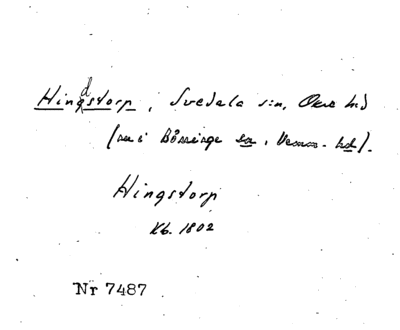 Hingdstorp, Svedala s:n, Oxie hd
(nu i Börringe sn, Vemm. hd).
Hingstorp
Kb. 1802
Nr 7487